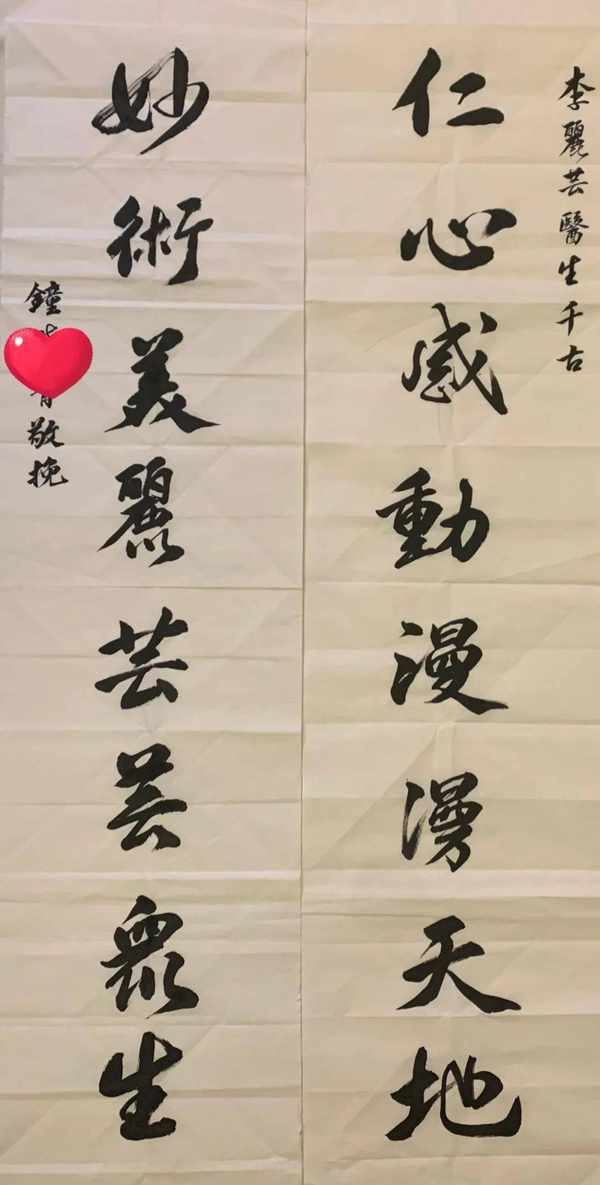 李麗芸醫生千古
仁心感動漫漫天地
妙術美麗芸芸眾生
鐘
敬挽